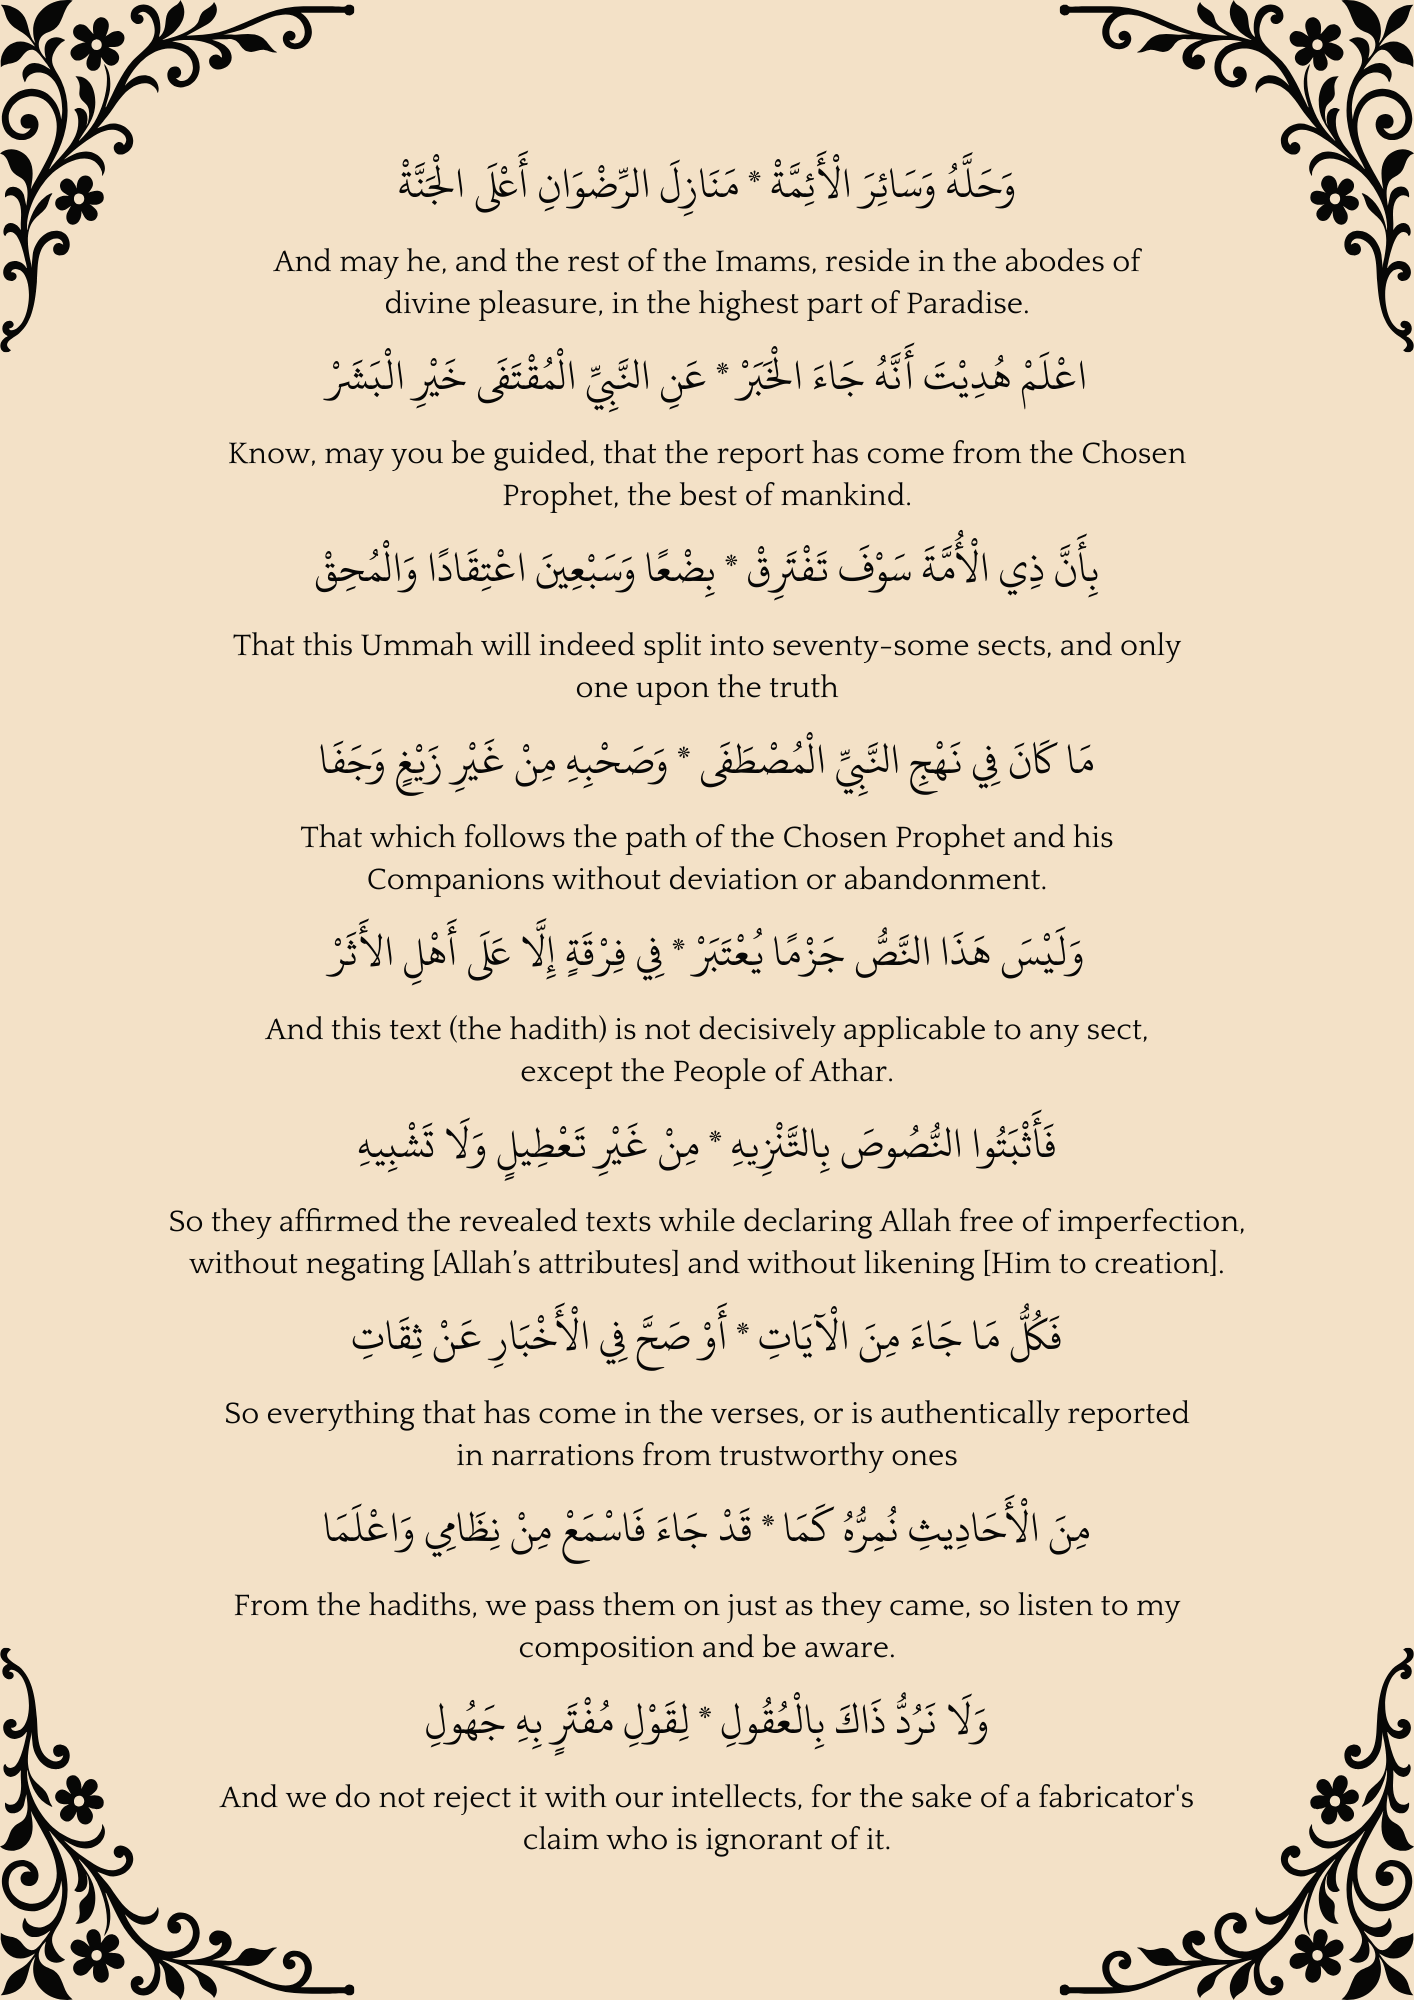 وَحَلَّهُ وَسَائِرَ الْأَئِمَّةْ * مَنَازِلَ الرِّضْوَانِ أَعْلَى الْجَنَّةْ
And may he, and the rest of the Imams, reside in the abodes of
divine pleasure, in the highest part of Paradise.
اعْلَمْ هُدِيْتَ أَنَّهُ جَاءَ الْخَبَرْ * عَنِ النَّبِيِّ الْمُقْتَفَى خَيْرِ الْبَشَرْ
Know, may you be guided, that the report has come from the Chosen
Prophet, the best of mankind.
بِأَنَّ ذِي الْأُمَّةَ سَوْفَ تَفْتَرِقْ * بِضْعًا وَسَبْعِينَ اعْتِقَادًا وَالْمُحِقْ
That this Ummah will indeed split into seventy-some sects, and only
one upon the truth
مَا كَانَ فِي نَهْجِ النَّبِيِّ الْمُصْطَفَى * وَصَحْبِهِ مِنْ غَيْرِ زَيْغٍ وَجَفَا
That which follows the path of the Chosen Prophet and his
Companions without deviation or abandonment.
وَلَيْسَ هَذَا النَّصُّ جَزْمًا يُعْتَبَرْ * فِي فِرْقَةٍ إِلَّا عَلَى أَهْلِ الأَثَرْ
And this text (the hadith) is not decisively applicable to any sect,
except the People of Athar.
فَأَثْبَتُوا النُّصُوصَ بِالتَّنْزِيهِ * مِنْ غَيْرِ تَعْطِيلٍ وَلَا تَشْبِيهِ
So they affirmed the revealed texts while declaring Allah free of imperfection,
without negating [Allah’s attributes] and without likening [Him to creation].
فَكُلُّ مَا جَاءَ مِنَ الْآيَاتِ * أَوْ صَحَّ فِي الْأَخْبَارِ عَنْ ثِقَاتِ
So everything that has come in the verses, or is authentically reported
in narrations from trustworthy ones
مِنَ الْأَحَادِيثِ نُمِرُّهُ كَمَا * قَدْ جَاءَ فَاسْمَعْ مِنْ نِظَامِي وَاعْلَمَا
From the hadiths, we pass them on just as they came, so listen to my
composition and be aware.
وَلَا نَرُدُّ ذَاكَ بِالْعُقُولِ * لِقَوْلِ مُفْتَرٍ بِهِ جَهُولِ
And we do not reject it with our intellects, for the sake of a fabricator's
claim who is ignorant of it.